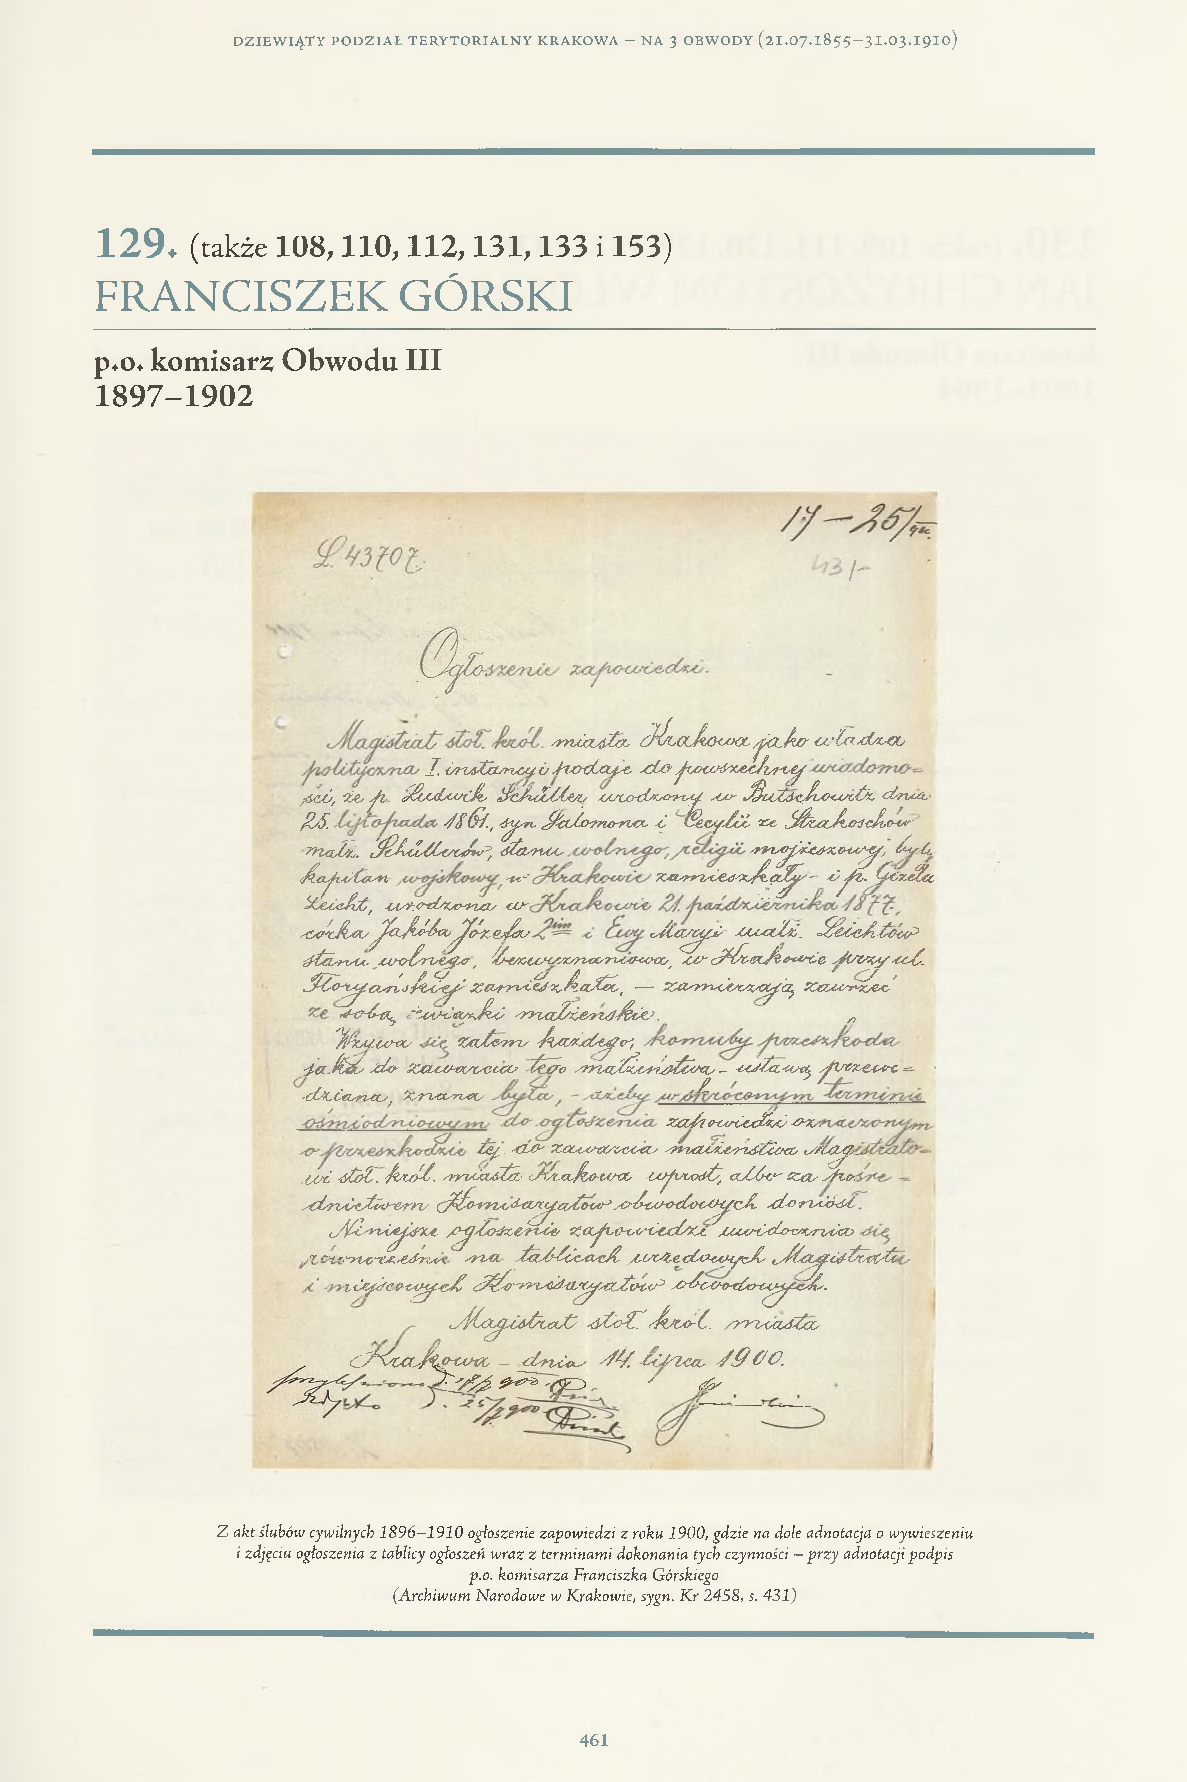 DZIEWIĄTY PODZIAŁ TERYTORIALNY KRAKOWA – NA 3 OBWODY (21.07.1855–31.03.1910)
129. (także 108, 110, 112, 131, 133 i 153)
FRANCISZEK GÓRSKI
p.o. komisarz Obwodu III
1897–1902
17 – 25/
L. 43707.
431-
Ogłoszenie zapowiedzi.
Magistrat stoł. król. miasta Krakowa jako władza
polityczna I. instancyi podaje do powszechnej wiadomo=
ści, że p. Ludwik Schüller, urodzony w Butschowitz dnia
25. listopada 1861., syn Salomona i Cecylii ze Strakoschów
małż. Schüllerów, stanu wolnego, religii mojżeszowej, były
kapitan wojskowy, w Krakowie zamieszkały - i p. Gizela
Leicht, urodzona w Krakowie 21. października 1877.,
córka Jakóba Józefa 2im i Ewy Maryi małż. Leichtów
stanu wolnego, bezwyznaniowa, w Krakowie przy ul.
Floryańskiej zamieszkała, — zamierzają zawrzeć
ze sobą związki małżeńskie.
Wzywa się zatem każdego, komuby przeszkoda
jaka do zawarcia tego małżeństwa - ustawą przewi=
dziana, znana była, - ażeby w skróconym terminie
ośmiodniowym do ogłoszenia zapowiedzi oznaczonym
o przeszkodzie tej do zawarcia małżeństwa Magistrato=
wi stoł. król. miasta Krakowa wprost, albo za pośre=
dnictwem Komisaryatów obwodowych doniósł.
Niniejsze ogłoszenie zapowiedzi uwidocznia się
równocześnie na tablicach urzędowych Magistratu
i miejscowych Komisaryatów obwodowych.
Magistrat stoł. król. miasta
Krakowa - dnia 14. lipca 1900.
d. 18/7 900
zdjęto d. 25/7 900
Z akt ślubów cywilnych 1896–1910 ogłoszenie zapowiedzi z roku 1900, gdzie na dole adnotacja o wywieszeniu
i zdjęciu ogłoszenia z tablicy ogłoszeń wraz z terminami dokonania tych czynności – przy adnotacji podpis
p.o. komisarza Franciszka Górskiego
(Archiwum Narodowe w Krakowie, sygn. Kr 2458, s. 431)
461